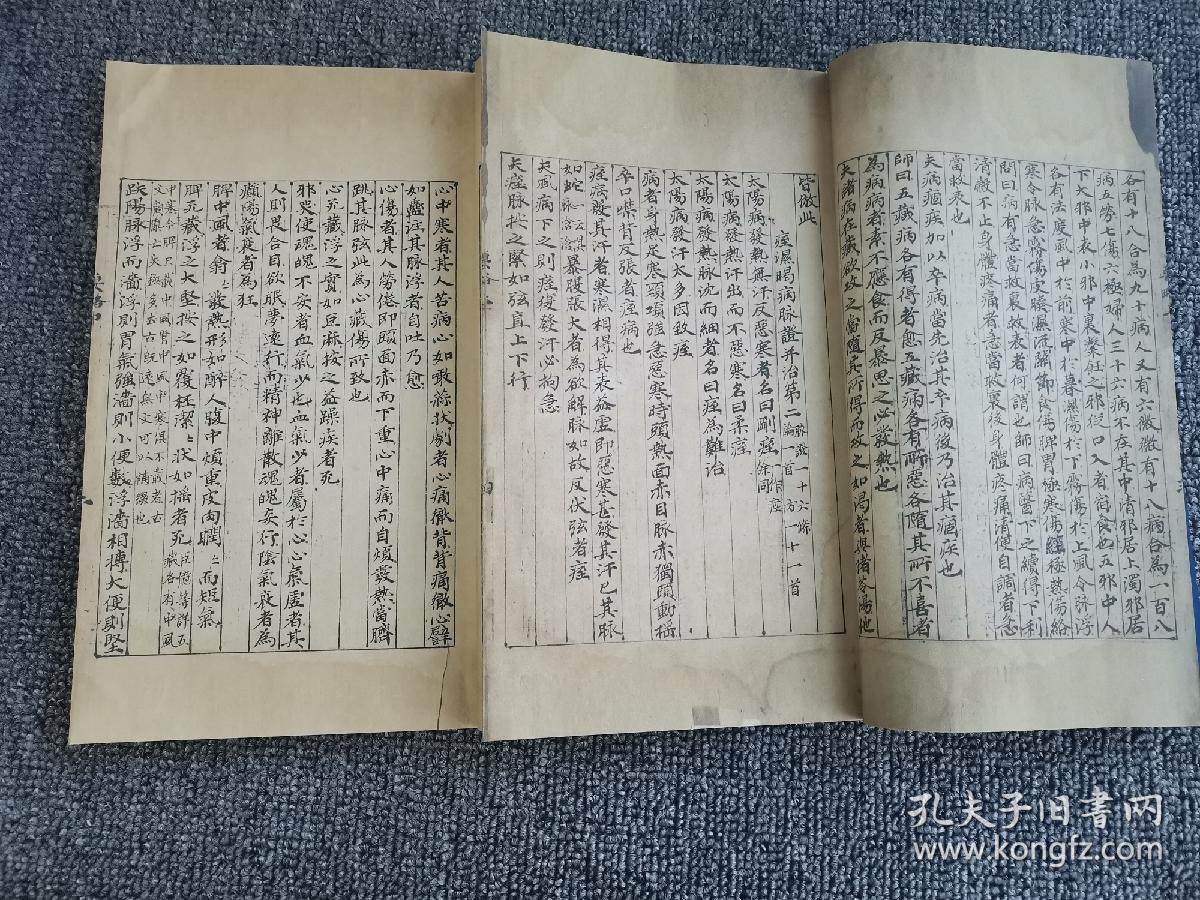 各有十八合為九十病人又有六微微有十八病合為一百八
病五勞七傷六極婦人三十六病不在其中清邪居上濁邪居
下大邪中表小邪中裏䅽飪之邪從口入者宿食也五邪中人
各有法度風中於前寒中於暮濕傷於下霧傷於上風令脉浮
寒令脉急霧傷皮腠濕流關節食傷脾胃極寒傷經極熱傷絡
問曰病有急當救裏救表者何謂也師曰病醫下之續得下利
清穀不止身體疼痛者急當救裏後身體疼痛清便自調者急
當救表也
夫病痼疾加以卒病當先治其卒病後乃治其痼疾也
師曰五藏病各有得者愈五藏病各有所惡各隨其所不喜者
為病病者素不應食而反暴思之必發熱也
夫諸病在藏欲攻之當隨其所得而攻之如渴者與猪苓湯他
皆倣此
痓濕暍病脉證并治第二論一首 脉證一十六條 方一十一首
太陽病發熱無汗反惡寒者名曰剛痓一作痙餘同
太陽病發熱汗出而不惡寒名曰柔痓
太陽病發熱脉沈而細者名曰痓為難治
太陽病發汗太多因致痓
病者身熱足寒頸項強急惡寒時頭熱面赤目脉赤獨頭動搖
卒口噤背反張者痓病也
痓病發其汗者寒濕相得其表益虛即惡寒甚發其汗已其脉
如蛇
暴腹張大者為欲解脉如故反伏弦者痓
夫風病下之則痓復發汗必拘急
夫痓脉按之緊如弦直上下行
心中寒者其人苦病心如噉蒜狀劇者心痛徹背背痛徹心譬
如蠱注其脉浮者自吐乃愈
心傷者其人勞倦即頭面赤而下重心中痛而自煩發熱當臍
跳其脉弦此為心藏傷所致也
心死藏浮之實如豆麻按之益躁疾者死
邪哭使魂魄不安者血氣少也血氣少者屬於心心氣虛者其
人則畏合目欲眠夢遠行而精神離散魂魄妄行陰氣衰者為
癲陽氣衰者為狂
脾中風者翕翕發熱形如醉人腹中煩重皮肉瞤瞤而短氣
脾死藏浮之大堅按之如覆杯潔潔狀如搖者死臣億等詳五藏各有中風
中寒今脾只載中風腎中風中寒俱不載者古
文簡亂去古既遠無文可以補綴也
趺陽脉浮而濇浮則胃氣強濇則小便數浮濇相搏大便則堅
孔夫子旧书网
www.kongfz.com